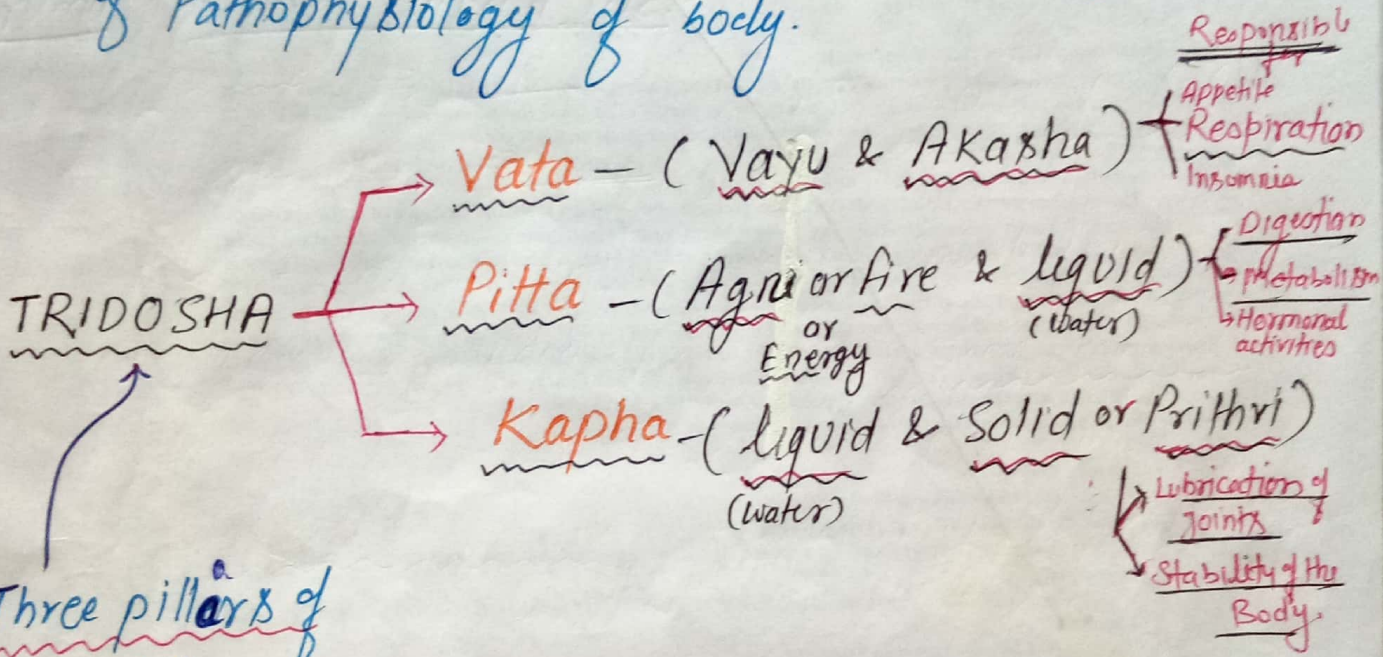 of Pathophysiology of body.
Responsibl
for
Vata – ( Vayu & Akasha )
Appetite
Respiration
Insomnia
TRIDOSHA
Pitta – ( Agni or fire & liquid )
or
Energy
(water)
Digestion
Metabolism
Hormonal
activities
Kapha – ( liquid & Solid or Prithri )
(water)
Lubrication of
Joints
Stability of the
Body.
Three pillars of